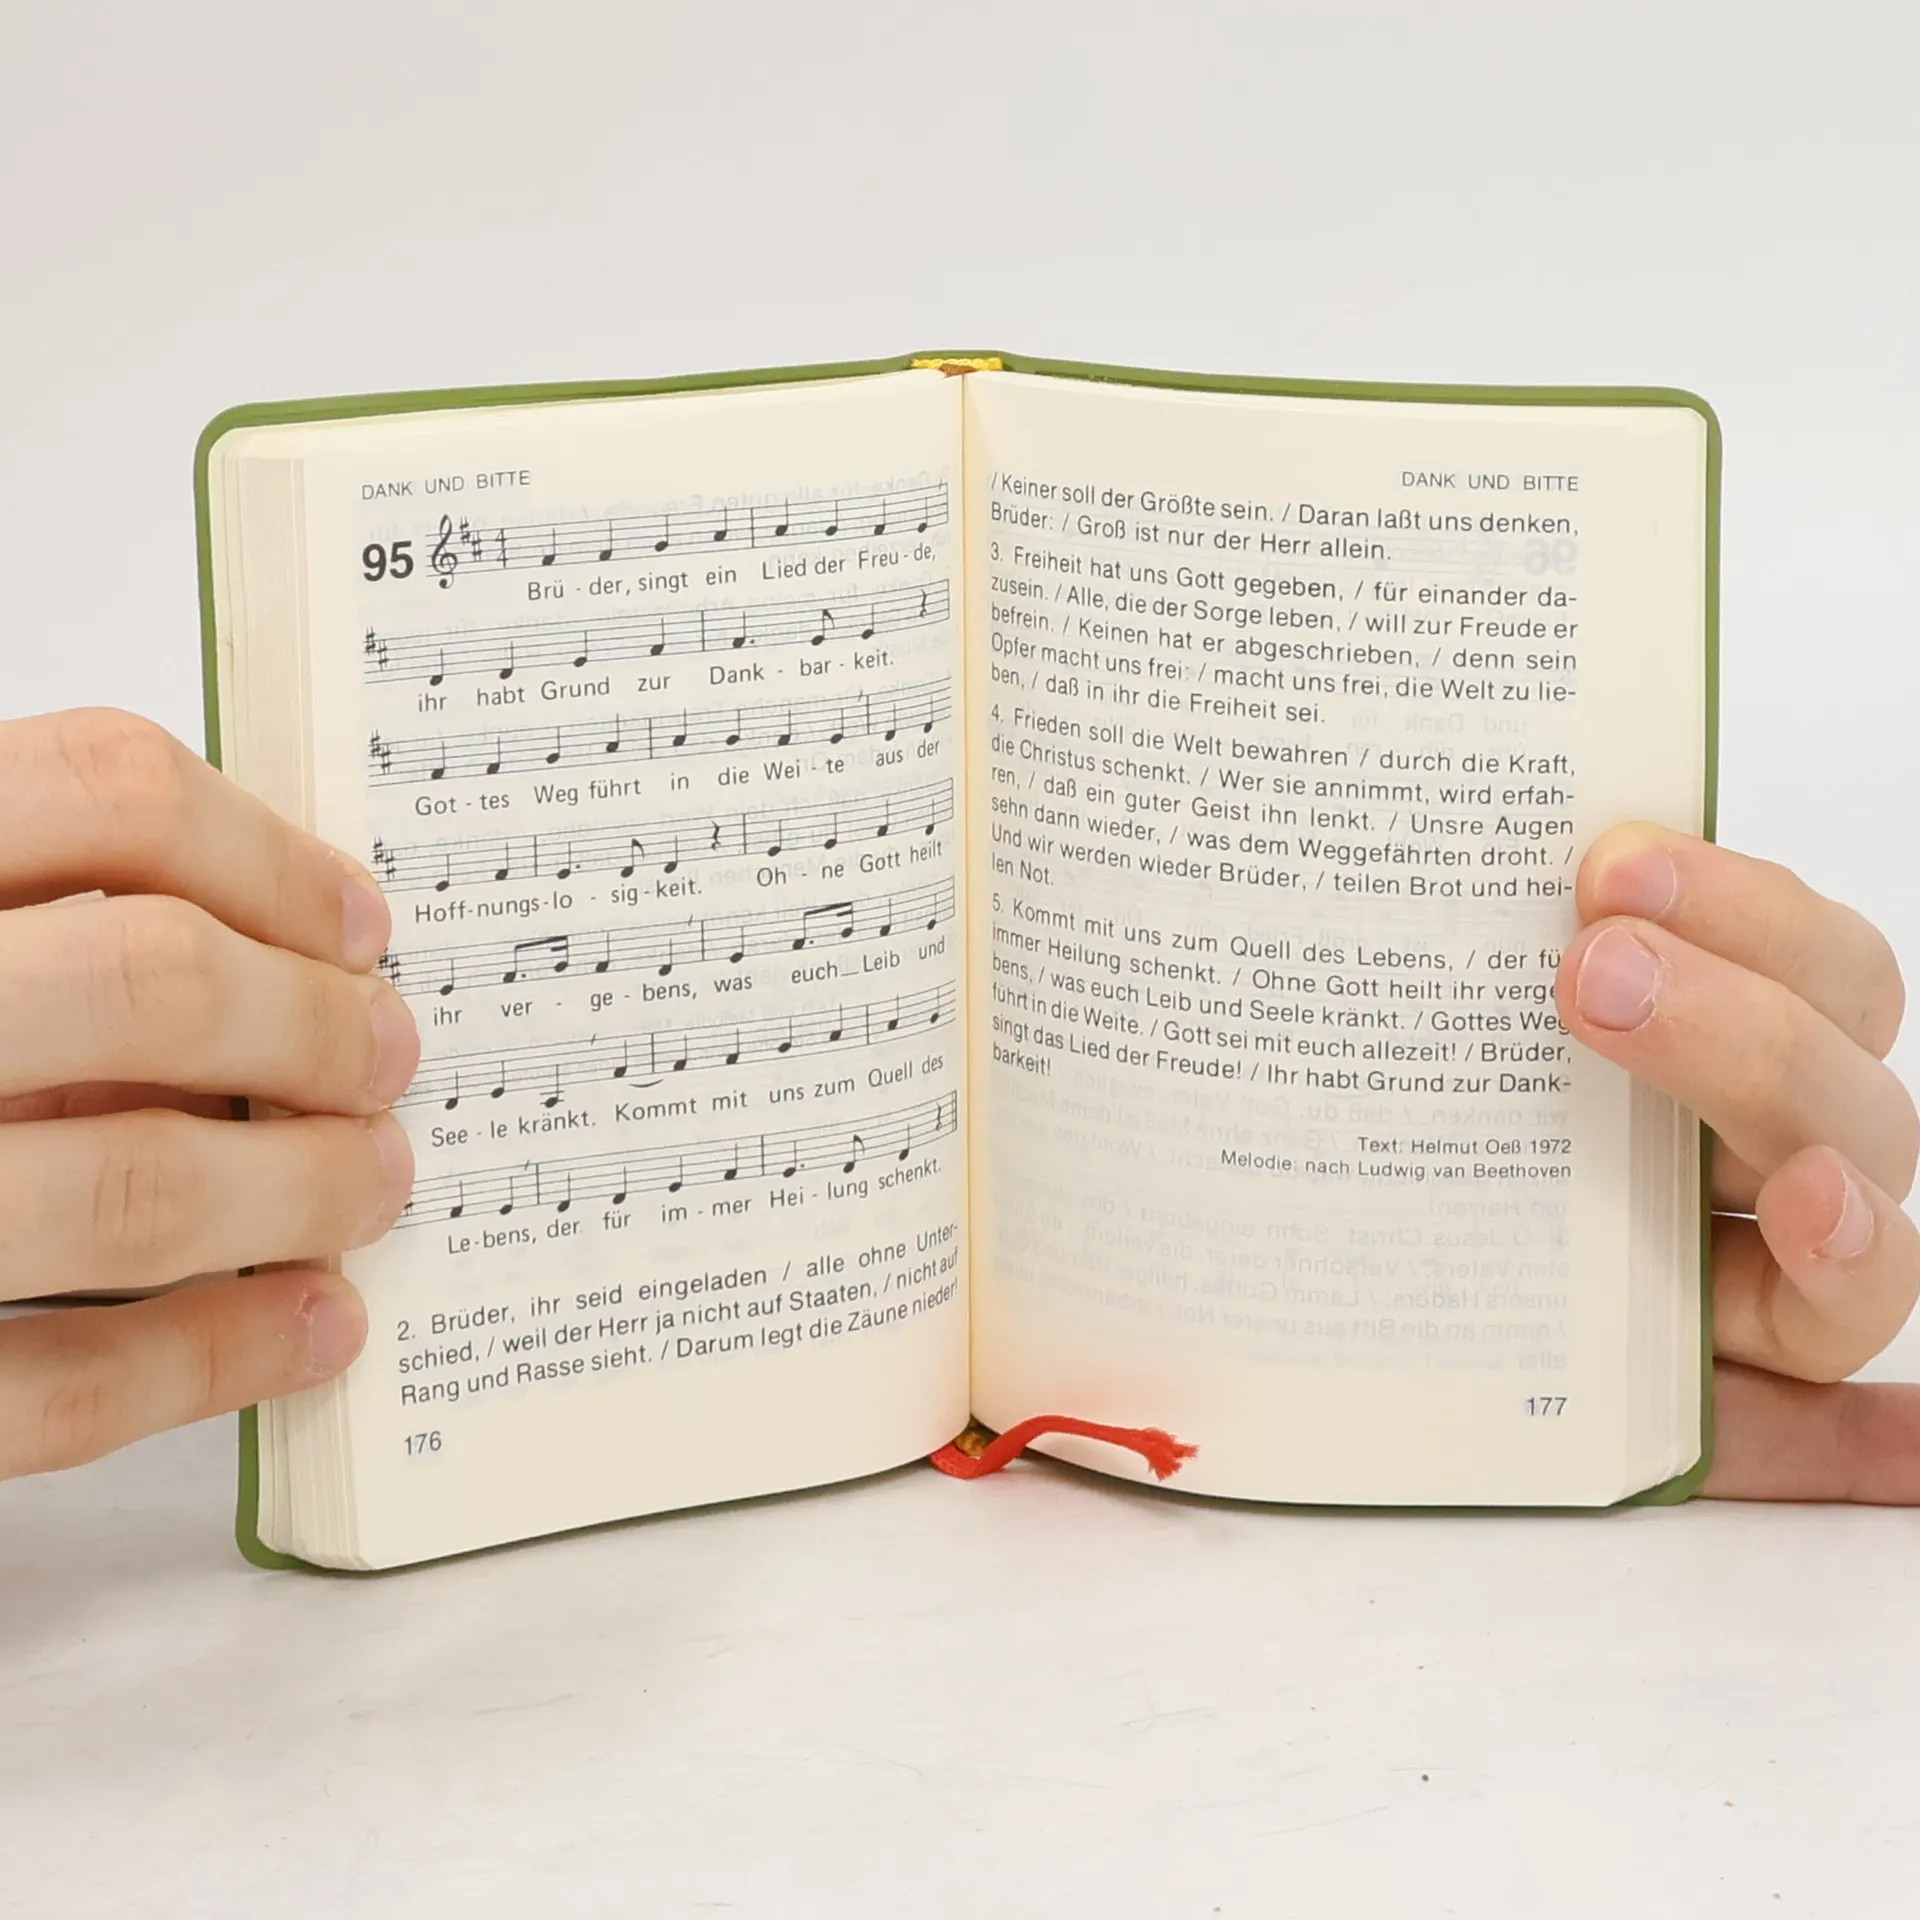 DANK UND BITTE
95
Brü - der, singt ein Lied der Freu - de,
ihr habt Grund zur Dank - bar - keit.
Got - tes Weg führt in die Wei - te aus der
Hoff-nungs-lo - sig-keit. Oh - ne Gott heilt
ihr ver - ge - bens, was euch_Leib und
See - le kränkt. Kommt mit uns zum Quell des
Le-bens, der für im - mer Hei - lung schenkt.
2. Brüder, ihr seid eingeladen / alle ohne Unter-
schied, / weil der Herr ja nicht auf Staaten, / nicht auf
Rang und Rasse sieht. / Darum legt die Zäune nieder!
176
DANK UND BITTE
/ Keiner soll der Größte sein. / Daran laßt uns denken,
Brüder: / Groß ist nur der Herr allein.
3. Freiheit hat uns Gott gegeben, / für einander da-
zusein. / Alle, die der Sorge leben, / will zur Freude er
befrein. / Keinen hat er abgeschrieben, / denn sein
Opfer macht uns frei: / macht uns frei, die Welt zu lie-
ben, / daß in ihr die Freiheit sei.
4. Frieden soll die Welt bewahren / durch die Kraft,
die Christus schenkt. / Wer sie annimmt, wird erfah-
ren, / daß ein guter Geist ihn lenkt. / Unsre Augen
sehn dann wieder, / was dem Weggefährten droht. /
Und wir werden wieder Brüder, / teilen Brot und hei-
len Not.
5. Kommt mit uns zum Quell des Lebens, / der fü
immer Heilung schenkt. / Ohne Gott heilt ihr verge
bens, / was euch Leib und Seele kränkt. / Gottes Weg
führt in die Weite. / Gott sei mit euch allezeit! / Brüder,
singt das Lied der Freude! / Ihr habt Grund zur Dank-
barkeit!
Text: Helmut Oeß 1972
Melodie: nach Ludwig van Beethoven
177